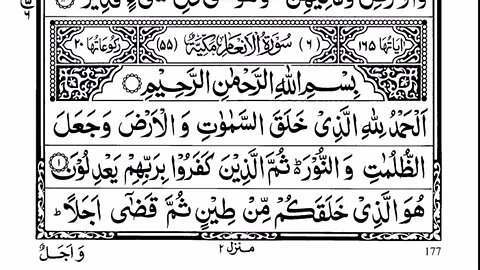 وَالْاَرْضِ وَمَا فِيْهِنَّ ؕ وَهُوَ عَلٰى كُلِّ شَىْءٍ قَدِيْرٌ
اٰيَاتُهَا ١٦٥ (٦) سُوْرَةُ الْاَنْعَامِ مَكِّيَّةٌ (٥٥) رُكُوْعَاتُهَا ٢٠
بِسْمِ اللّٰهِ الرَّحْمٰنِ الرَّحِيْمِ
اَلْحَمْدُ لِلّٰهِ الَّذِىْ خَلَقَ السَّمٰوٰتِ وَ الْاَرْضَ وَ جَعَلَ
الظُّلُمٰتِ وَ النُّوْرَ ۬ؕ ثُمَّ الَّذِيْنَ كَفَرُوْا بِرَبِّهِمْ يَعْدِلُوْنَ ١
هُوَ الَّذِىْ خَلَقَكُمْ مِّنْ طِيْنٍ ثُمَّ قَضٰۤى اَجَلًا ؕ
وَ اَجَلٌ منزل ٢ 177